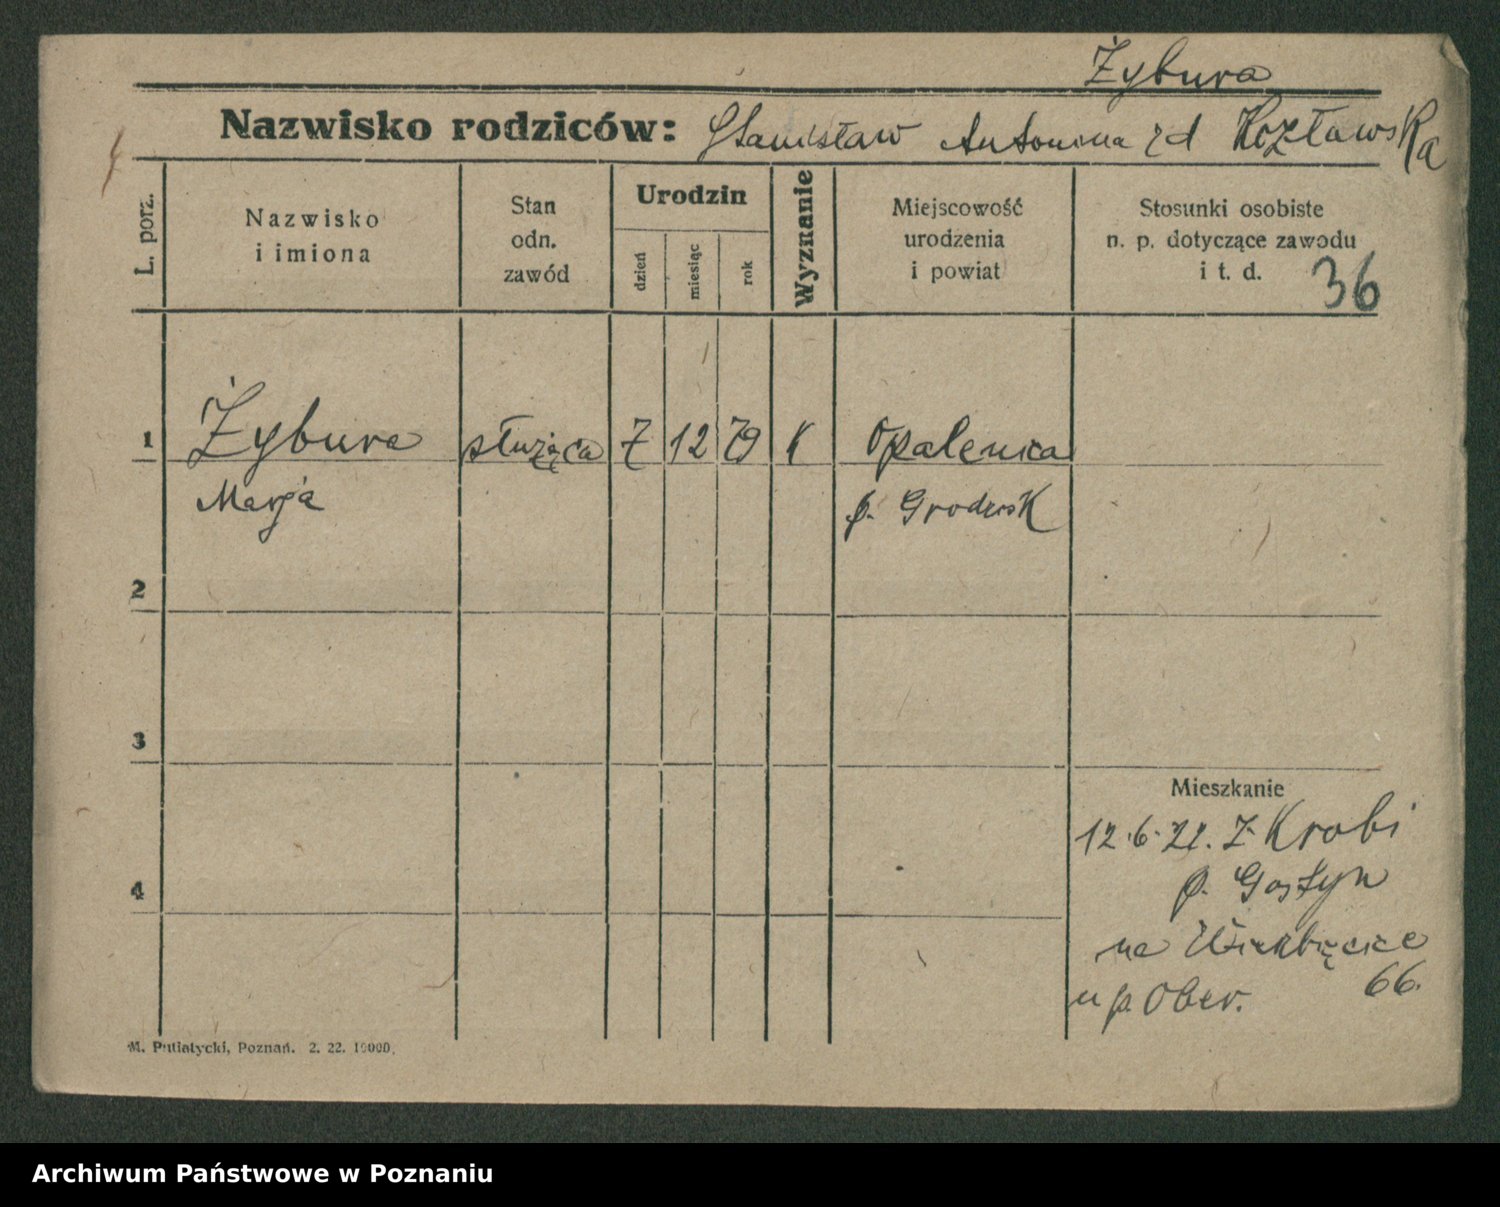 Żybura
Nazwisko rodziców: Stanisław Antonina zd Kozławska
L. porz.
Nazwisko
i imiona
Stan
odn.
zawód
Urodzin
dzień
miesiąc
rok
Wyznanie
Miejscowość
urodzenia
i powiat
Stosunki osobiste
n. p. dotyczące zawodu
i t. d.
36
1 Żybura służąca 7 12 79 K Opalenica
Marja p. Grodzisk
2
3
Mieszkanie
12.6.22. z Krobi
p. Gostyn
4
na Wierzbięcice
66.
u p. Ober.
M. Putiatycki, Poznań. 2. 22. 10000.
Archiwum Państwowe w Poznaniu